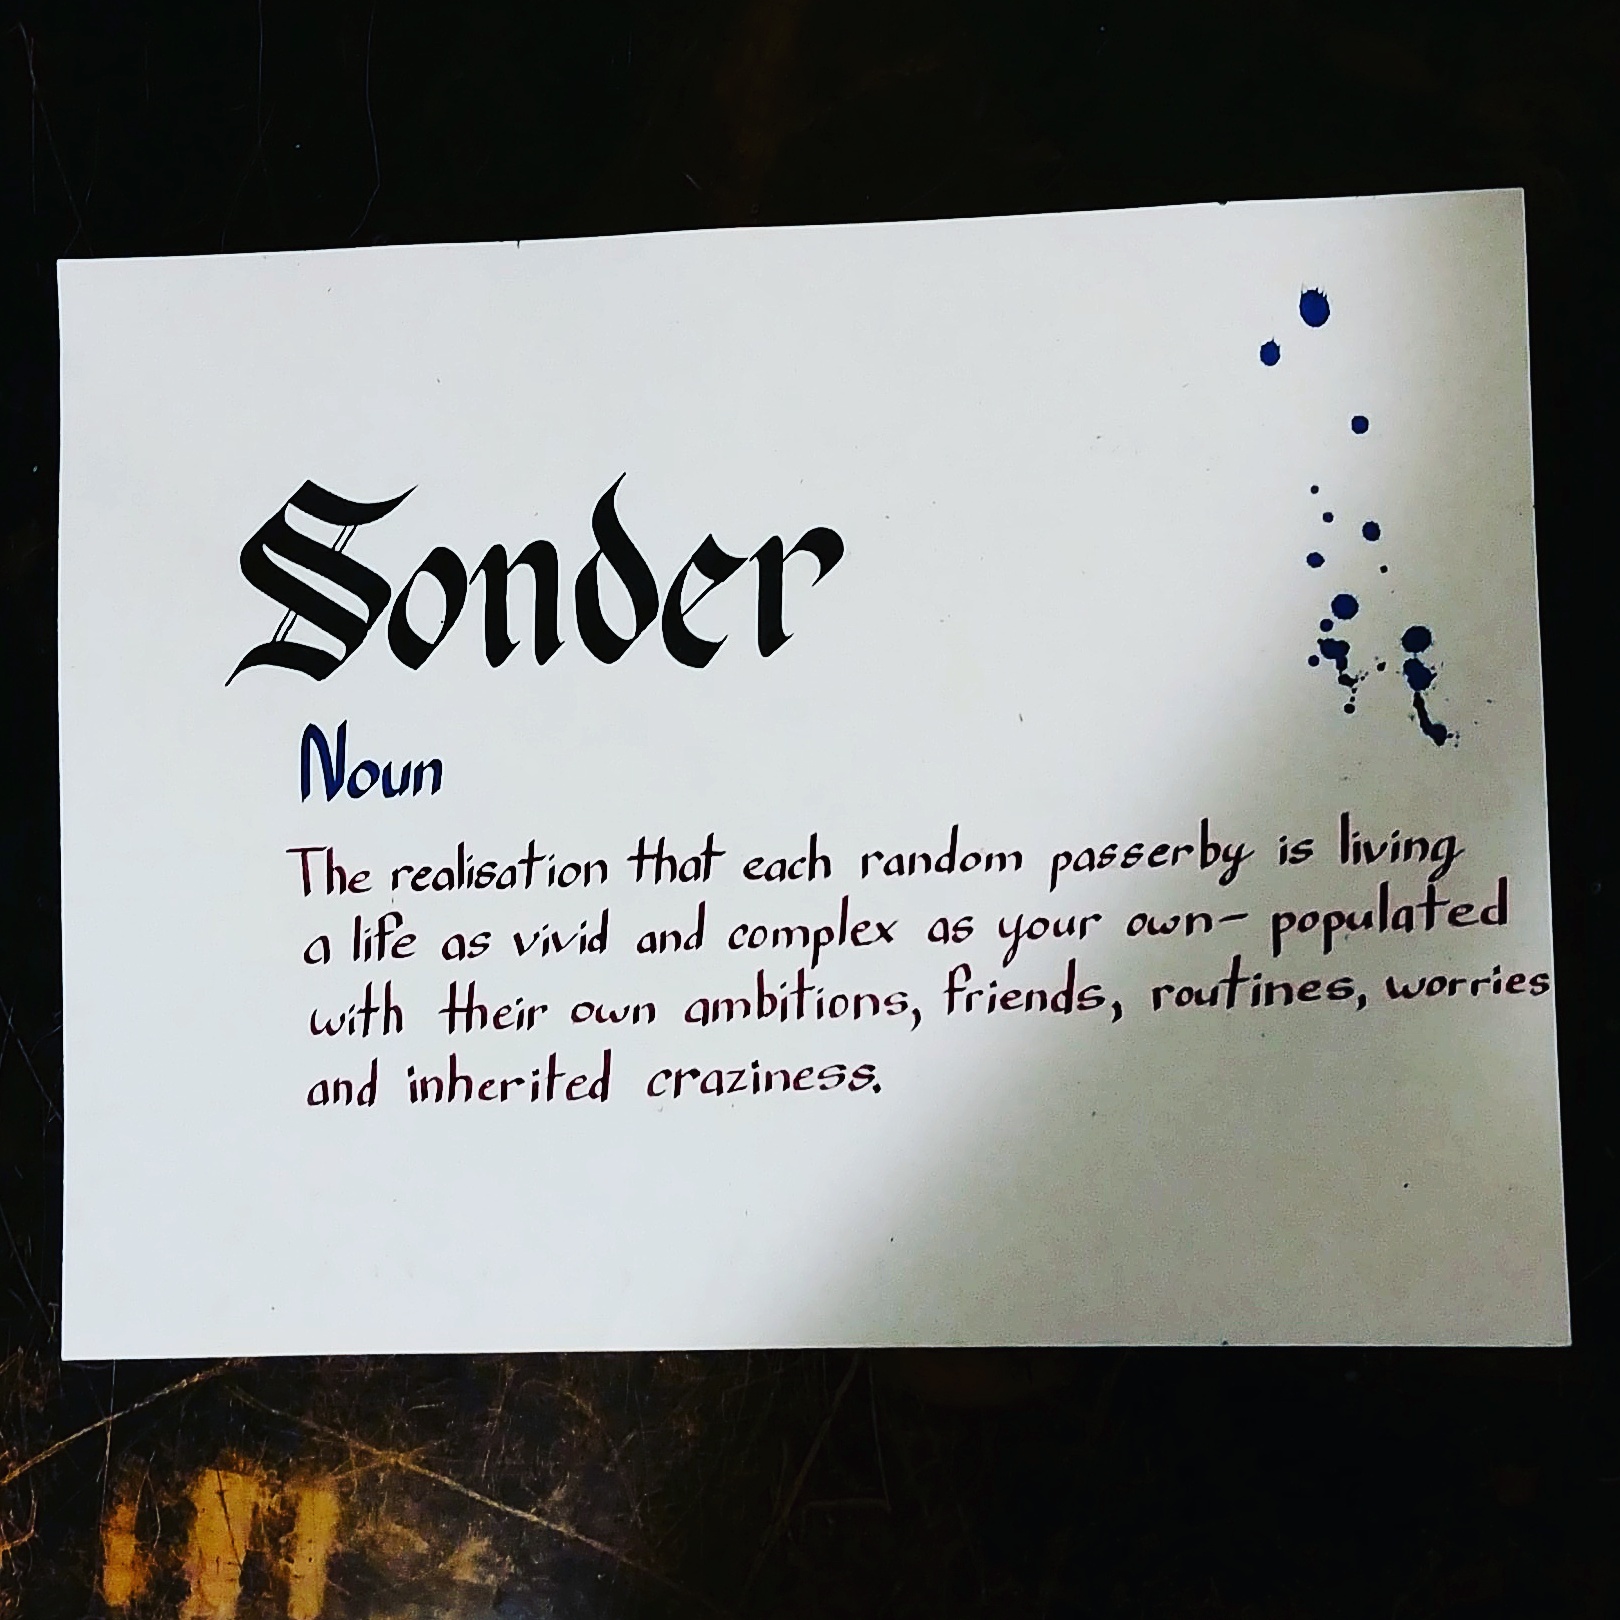 Sonder
Noun
The realisation that each random passerby is living
a life as vivid and complex as your own- populated
with their own ambitions, friends, routines, worries
and inherited craziness.